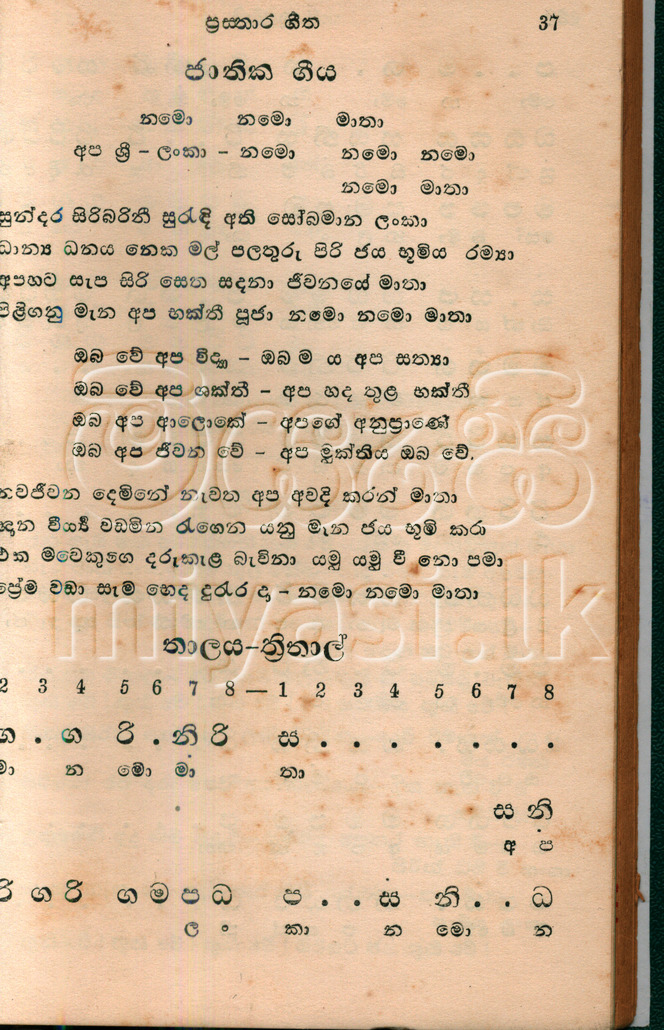 ප්‍රස්තාර ගීත 37
ජාතික ගීය
නමො නමො මාතා
අප ශ්‍රී – ලංකා – නමො නමො නමො
නමො මාතා
සුන්දර සිරිබරිනී සුරැඳි අති සෝබමාන ලංකා
ධාන්‍ය ධනය නෙක මල් පලතුරු පිරි ජය භූමිය රම්‍යා
අපහට සැප සිරි සෙත සදනා ජීවනයේ මාතා
පිළිගනු මැන අප භක්තී පූජා නමො නමො මාතා
ඔබ වේ අප විද්‍යා – ඔබ ම ය අප සත්‍යා
ඔබ වේ අප ශක්තී – අප හද තුළ භක්තී
ඔබ අප ආලොකේ – අපගේ අනුප්‍රාණේ
ඔබ අප ජීවන වේ – අප මුක්තිය ඔබ වේ.
නවජීවන දෙමිනේ නැවත අප අවදි කරන් මාතා
ඥාන වීර්‍ය්‍ය වඩමින රැගෙන යනු මැන ජය භූමි කරා
එක මවෙකුගෙ දරුකැළ බැවිනා යමු යමු වී නො පමා
ප්‍රේම වඩා සැම භෙද දුරැර දා – නමො නමො මාතා
තාලය–ත්‍රිතාල්
2 3 4 5 6 7 8 — 1 2 3 4 5 6 7 8
ග . ග රි . නි රි ස . . . . . . .
මා න මො මා තා
ස නි
අ ප
රි ග රි ග ම ප ධ ප . . ස නි . . ධ
ල ං කා න මො න
මියැසි
miyasi.lk